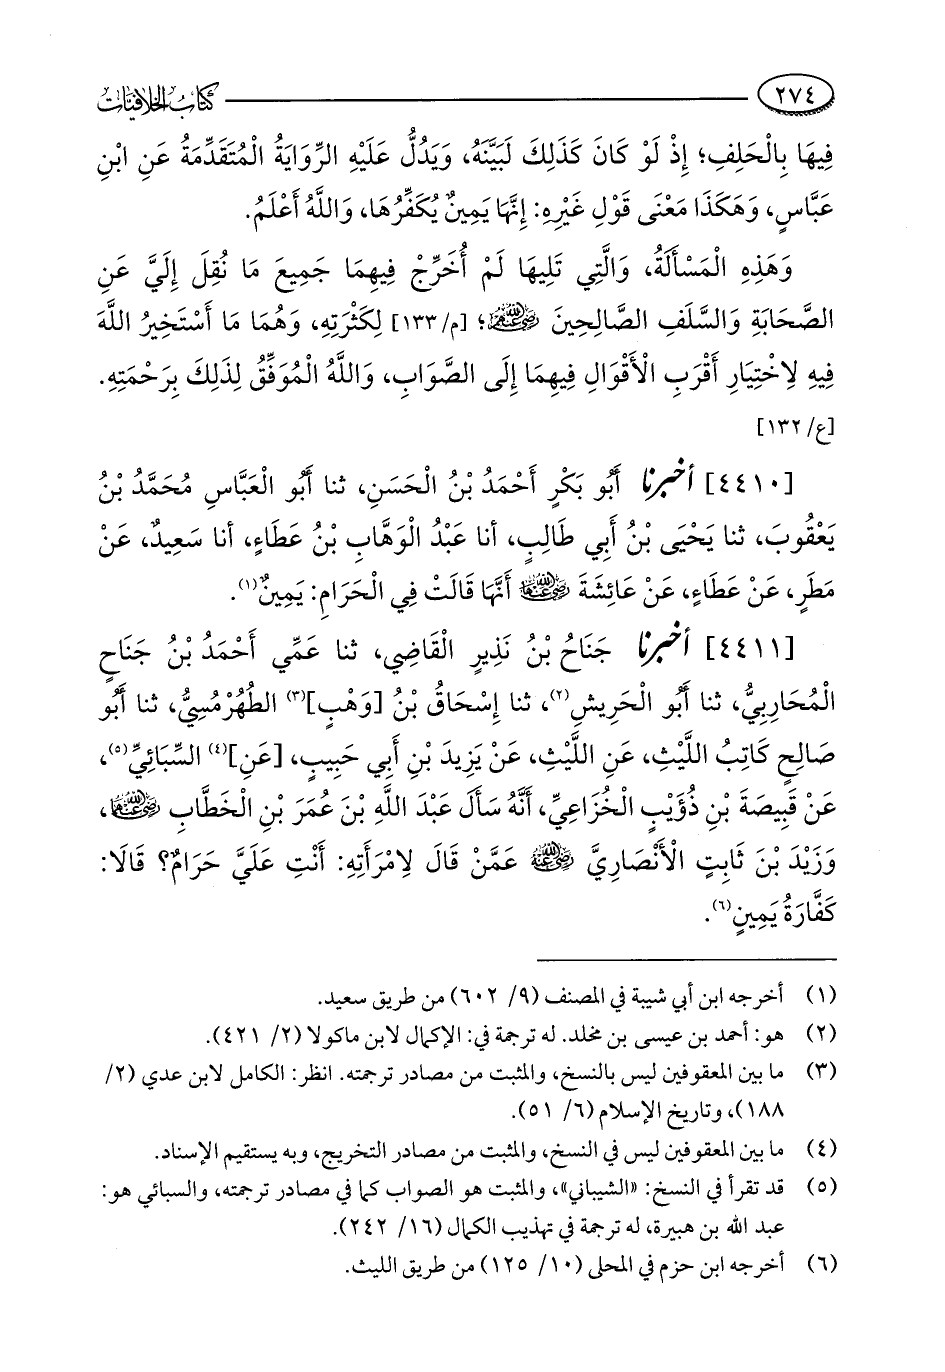 ٢٧٤ كتاب الخلافيات
فِيهَا بِالْحَلِفِ؛ إِذْ لَوْ كَانَ كَذَلِكَ لَبَيَّنَهُ، وَيَدُلُّ عَلَيْهِ الرِّوَايَةُ الْمُتَقَدِّمَةُ عَنِ ابْنِ
عَبَّاسٍ، وَهَكَذَا مَعْنَى قَوْلِ غَيْرِهِ: إِنَّهَا يَمِينٌ يُكَفِّرُهَا، وَاللَّهُ أَعْلَمُ.
وَهَذِهِ الْمَسْأَلَةُ، وَالَّتِي تَلِيهَا لَمْ أُخَرِّجْ فِيهِمَا جَمِيعَ مَا نُقِلَ إِلَيَّ عَنِ
الصَّحَابَةِ وَالسَّلَفِ الصَّالِحِينَ رضي الله عنهم؛ [م/١٣٣] لِكَثْرَتِهِ، وَهُمَا مَا أَسْتَخِيرُ اللَّهَ
فِيهِ لِاخْتِيَارِ أَقْرَبِ الْأَقْوَالِ فِيهِمَا إِلَى الصَّوَابِ، وَاللَّهُ الْمُوَفِّقُ لِذَلِكَ بِرَحْمَتِهِ.
[ع/١٣٢]
[٤٤١٠] أخبرنا أَبُو بَكْرٍ أَحْمَدُ بْنُ الْحَسَنِ، ثنا أَبُو الْعَبَّاسِ مُحَمَّدُ بْنُ
يَعْقُوبَ، ثنا يَحْيَى بْنُ أَبِي طَالِبٍ، أنا عَبْدُ الْوَهَّابِ بْنُ عَطَاءٍ، أنا سَعِيدٌ، عَنْ
مَطَرٍ، عَنْ عَطَاءٍ، عَنْ عَائِشَةَ رضي الله عنها أَنَّهَا قَالَتْ فِي الْحَرَامِ: يَمِينٌ(١).
[٤٤١١] أخبرنا جَنَاحُ بْنُ نَذِيرٍ الْقَاضِي، ثنا عَمِّي أَحْمَدُ بْنُ جَنَاحٍ
الْمُحَارِبِيُّ، ثنا أَبُو الْحَرِيشِ(٢)، ثنا إِسْحَاقُ بْنُ [وَهْبٍ](٣) الطُّهُرْمُسِيُّ، ثنا أَبُو
صَالِحٍ كَاتِبُ اللَّيْثِ، عَنِ اللَّيْثِ، عَنْ يَزِيدَ بْنِ أَبِي حَبِيبٍ، [عَنِ](٤) السِّبَائِيِّ(٥)،
عَنْ قَبِيصَةَ بْنِ ذُؤَيْبٍ الْخُزَاعِيِّ، أَنَّهُ سَأَلَ عَبْدَ اللَّهِ بْنَ عُمَرَ بْنِ الْخَطَّابِ رضي الله عنهما،
وَزَيْدَ بْنَ ثَابِتٍ الْأَنْصَارِيَّ رضي الله عنه عَمَّنْ قَالَ لِامْرَأَتِهِ: أَنْتِ عَلَيَّ حَرَامٌ؟ قَالَا:
كَفَّارَةُ يَمِينٍ(٦).
(١) أخرجه ابن أبي شيبة في المصنف (٩/ ٦٠٢) من طريق سعيد.
(٢) هو: أحمد بن عيسى بن مخلد. له ترجمة في: الإكمال لابن ماكولا (٢/ ٤٢١).
(٣) ما بين المعقوفين ليس بالنسخ، والمثبت من مصادر ترجمته. انظر: الكامل لابن عدي (٢/
١٨٨)، وتاريخ الإسلام (٦/ ٥١).
(٤) ما بين المعقوفين ليس في النسخ، والمثبت من مصادر التخريج، وبه يستقيم الإسناد.
(٥) قد تقرأ في النسخ: «الشيباني»، والمثبت هو الصواب كما في مصادر ترجمته، والسبائي هو:
عبد الله بن هبيرة، له ترجمة في تهذيب الكمال (١٦/ ٢٤٢).
(٦) أخرجه ابن حزم في المحلى (١٠/ ١٢٥) من طريق الليث.